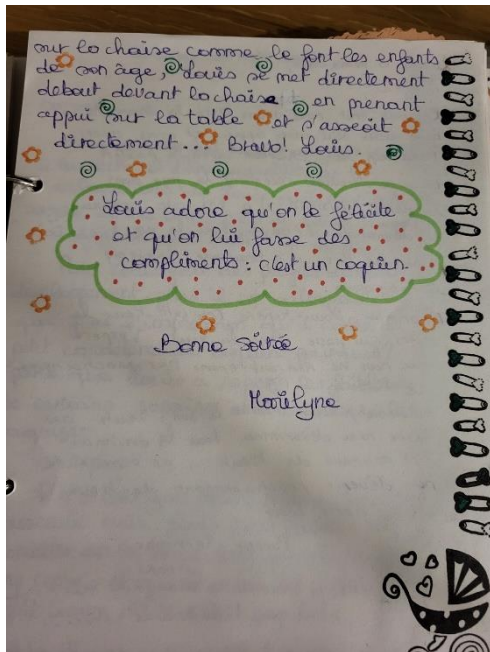 sur la chaise comme le font les enfants
de son âge, Louis se met directement
debout devant la chaise en prenant
appui sur la table et s'asseoit
directement... Bravo! Louis.
Louis adore qu'on le félicite
et qu'on lui fasse des
compliments : c'est un coquin.
Bonne Soirée
Marilyne